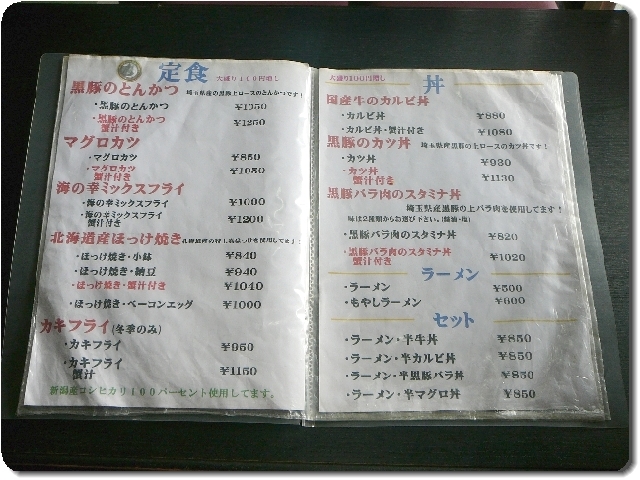 定食 大盛り100円増し
黒豚のとんかつ 埼玉県産の黒豚上ロースのとんかつです!
・黒豚のとんかつ ¥1050
・黒豚のとんかつ 蟹汁付き ¥1250
マグロカツ
・マグロカツ ¥850
・マグロカツ 蟹汁付き ¥1050
海の幸ミックスフライ
・海の幸ミックスフライ ¥1000
・海の幸ミックスフライ 蟹汁付き ¥1200
北海道産ほっけ焼き
・ほっけ焼き・小鉢 ¥840
・ほっけ焼き・納豆 ¥940
・ほっけ焼き・蟹汁付き ¥1040
・ほっけ焼き・ベーコンエッグ ¥1000
カキフライ(冬季のみ)
・カキフライ ¥950
・カキフライ 蟹汁 ¥1150
新潟産コシヒカリ100パーセント使用してます。
丼 大盛り100円増し
国産牛のカルビ丼
・カルビ丼 ¥880
・カルビ丼・蟹汁付き ¥1080
黒豚のカツ丼 埼玉県産黒豚の上ロースのカツ丼です!
・カツ丼 ¥930
・カツ丼 蟹汁付き ¥1130
黒豚バラ肉のスタミナ丼
埼玉県産黒豚の上バラ肉を使用してます!
味は2種類からお選び下さい。(醤油・塩)
・黒豚バラ肉のスタミナ丼 ¥820
・黒豚バラ肉のスタミナ丼 蟹汁付き ¥1020
ラーメン
・ラーメン ¥500
・もやしラーメン ¥600
セット
・ラーメン・半牛丼 ¥850
・ラーメン・半カルビ丼 ¥850
・ラーメン・半黒豚バラ丼 ¥850
・ラーメン・半マグロ丼 ¥850